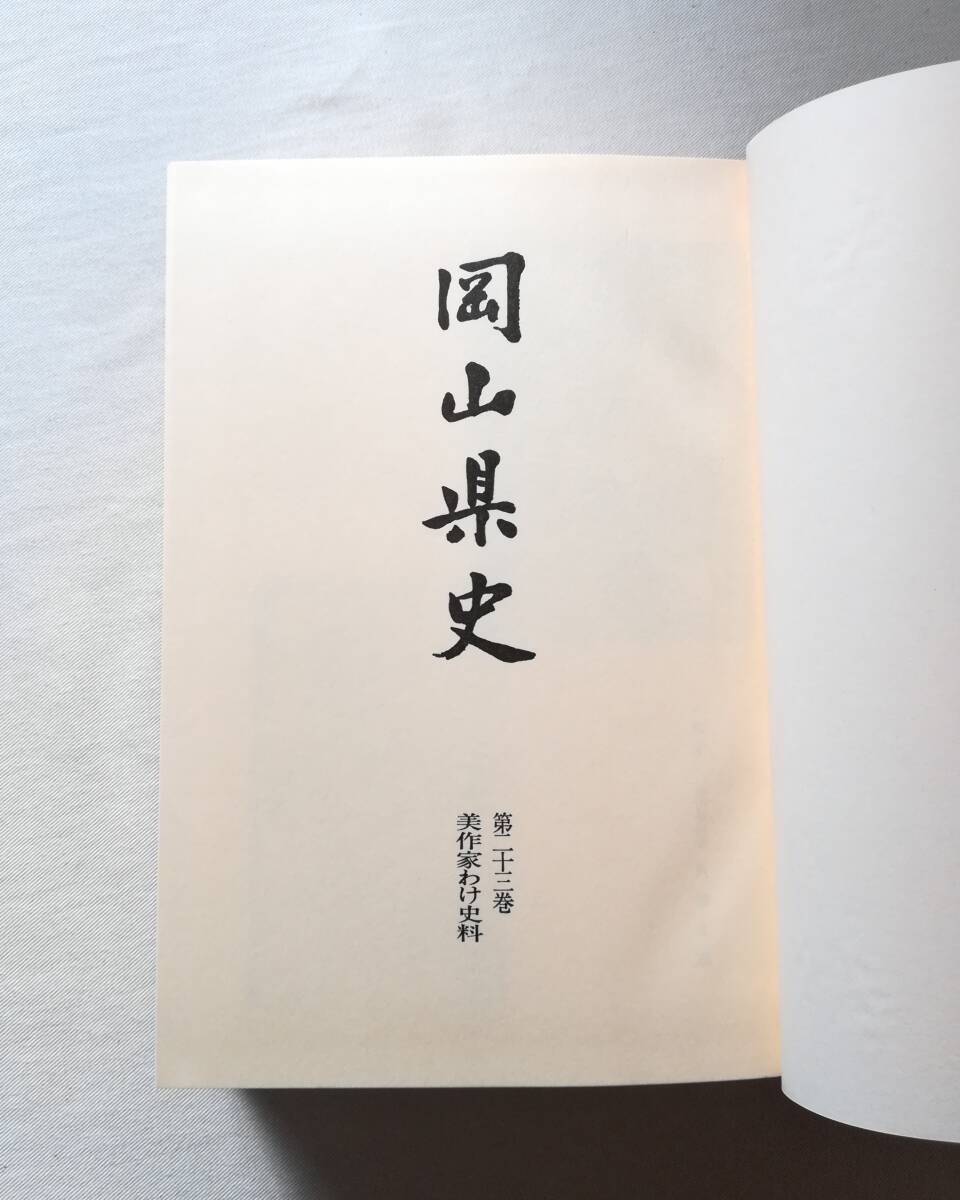 岡山県史
第二十三巻
美作家わけ史料